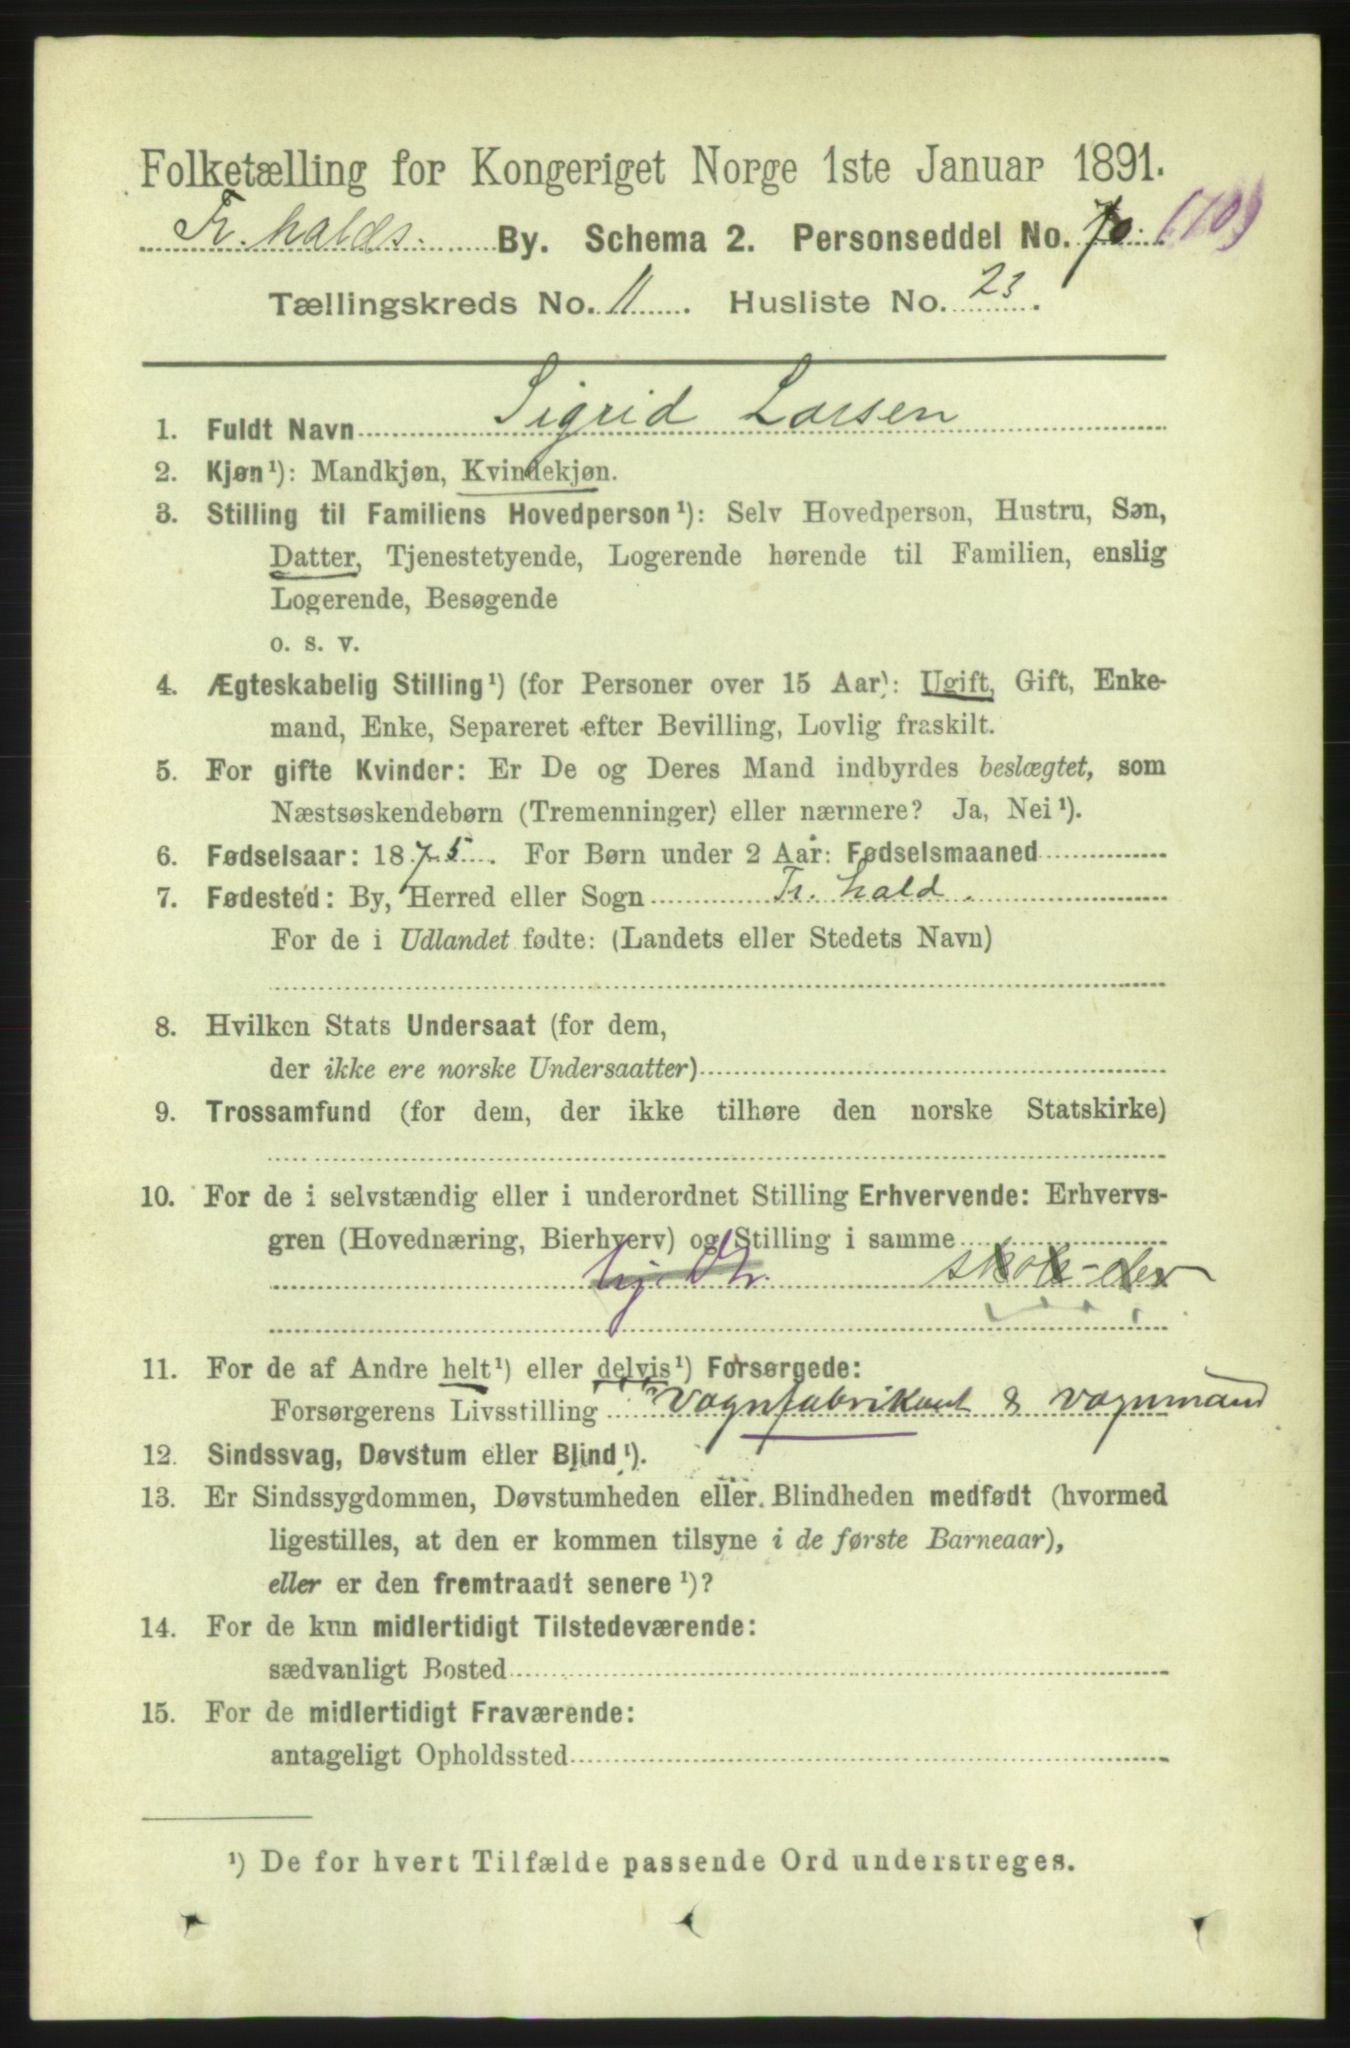 Folketælling for Kongeriget Norge 1ste Januar 1891.
Fr.halds. By. Schema 2. Personseddel No. 70. (70)
Tællingskreds No. 11. Husliste No. 23.
1. Fuldt Navn Sigrid Larsen
2. Kjøn¹): Mandkjøn, Kvindekjøn.
3. Stilling til Familiens Hovedperson¹): Selv Hovedperson, Hustru, Søn,
Datter, Tjenestetyende, Logerende hørende til Familien, enslig
Logerende, Besøgende
o. s. v.
4. Ægteskabelig Stilling¹) (for Personer over 15 Aar): Ugift, Gift, Enke-
mand, Enke, Separeret efter Bevilling, Lovlig fraskilt.
5. For gifte Kvinder: Er De og Deres Mand indbyrdes beslægtet, som
Næstsøskendebørn (Tremenninger) eller nærmere? Ja, Nei¹).
6. Fødselsaar: 1875. For Børn under 2 Aar: Fødselsmaaned
7. Fødested: By, Herred eller Sogn Fr.hald.
For de i Udlandet fødte: (Landets eller Stedets Navn)
8. Hvilken Stats Undersaat (for dem,
der ikke ere norske Undersaatter)
9. Trossamfund (for dem, der ikke tilhøre den norske Statskirke)
10. For de i selvstændig eller i underordnet Stilling Erhvervende: Erhvervs-
gren (Hovednæring, Bierhverv) og Stilling i samme
11. For de af Andre helt¹) eller delvis¹) Forsørgede:
Forsørgerens Livsstilling Vognfabrikant & Vognmand
12. Sindssvag, Døvstum eller Blind¹).
13. Er Sindssygdommen, Døvstumheden eller Blindheden medfødt (hvormed
ligestilles, at den er kommen tilsyne i de første Barneaar),
eller er den fremtraadt senere¹)?
14. For de kun midlertidigt Tilstedeværende:
sædvanligt Bosted
15. For de midlertidigt Fraværende:
antageligt Opholdssted
¹) De for hvert Tilfælde passende Ord understreges.